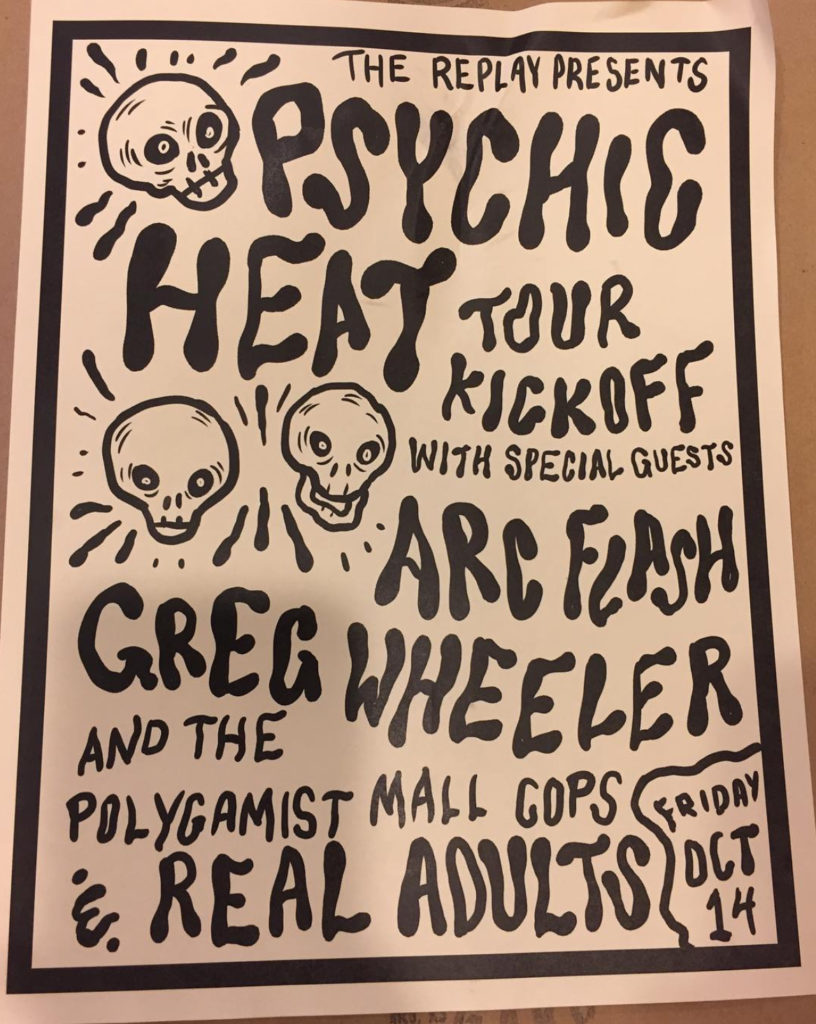 THE REPLAY PRESENTS
PSYCHIC
HEAT
TOUR
KICKOFF
WITH SPECIAL GUESTS
ARC FLASH
GREG WHEELER
AND THE
POLYGAMIST MALL COPS
& REAL ADULTS
FRIDAY
OCT
14